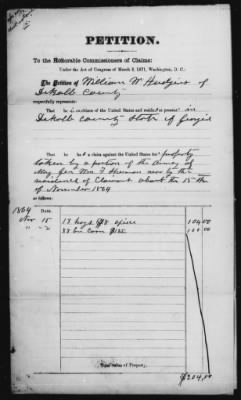 PETITION.
To the Honorable Commissioners of Claims:
Under the Act of Congress of March 3, 1871, Washington, D. C.:
The Petition of William W Hudgins of
DeKalb County
respectfully represents:
That he is citizen of the United States and resides at present in
DeKalb County State of Georgia
That he has a claim against the United States for property
taken by a portion of the Army of
Maj Gen Wm T Sherman near by the
residence of Claimant about the 15th
of November 1864
1864 Date.
Nov 15 18 hogs 104.00
" " 88 bu Corn 100.00
Total value of Property,
$204.00